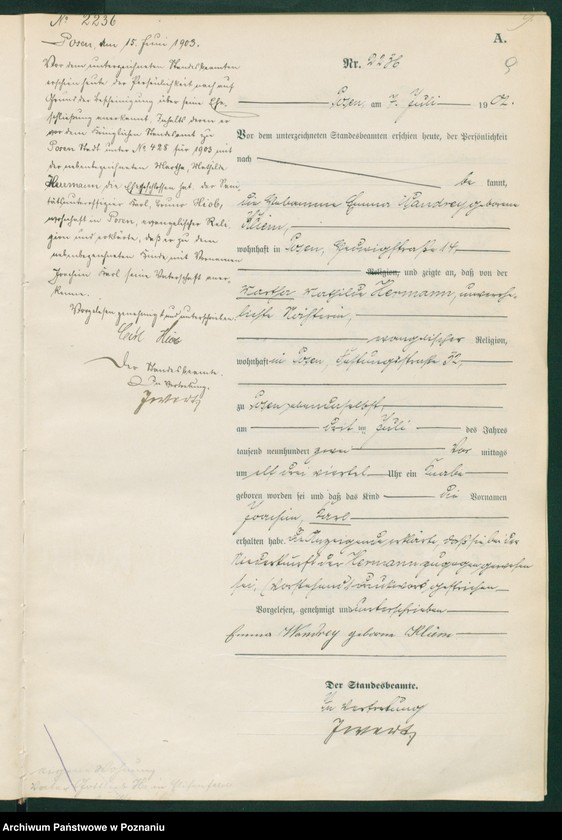 No 2236
Posen, am 15. Juni 1903.
Vor dem unterzeichneten Standesbeamten
erschien heute der Persönlichkeit nach auf
Grund der Bescheinigung über seine Ehe-
schließung anerkannt, Inhalts deren er
vor dem Königlichen Standesamt zu
Posen Stadt unter No 428 für 1903 mit
der nebenbezeichneten Martha, Mathilde
Hermann die Ehe geschlossen hat, der
Karl, Hiob,
wohnhaft in Posen, evangelischer Reli-
gion und erklärte, daß er zu dem
nebenbezeichneten Kinde mit Vornamen
Joachim Karl seine Vaterschaft aner-
kenne.
Vorgelesen genehmigt und unterschrieben
Hiob
Der Standesbeamte.
In Vertretung.
A.
9
Nr. 2236
Posen, am 7. Juli 1902.
Vor dem unterzeichneten Standesbeamten erschien heute, der Persönlichkeit
nach be kannt,
die Hebamme Emma Wandrey geborene
Kliem,
wohnhaft in Posen, Hedwigstraße 14,
Religion, und zeigte an, daß von der
Martha Mathilde Hermann, unverehe-
lichte
evangelischer Religion,
wohnhaft in Posen,
zu Posen ebendaselbst,
am drei ten Juli des Jahres
tausend neunhundert zwei Vor mittags
um elf drei viertel Uhr ein Knabe
geboren worden sei und daß das Kind die Vornamen
Joachim, Karl
erhalten habe. Die Anzeigende erklärte, daß sie bei der
Niederkunft der Hermann zugegen gewesen
sei. (Vorstehend 1 Druckwort gestrichen
Vorgelesen, genehmigt und unterschrieben
Emma Wandrey geborene Kliem
Der Standesbeamte.
In Vertretung
Archiwum Państwowe w Poznaniu